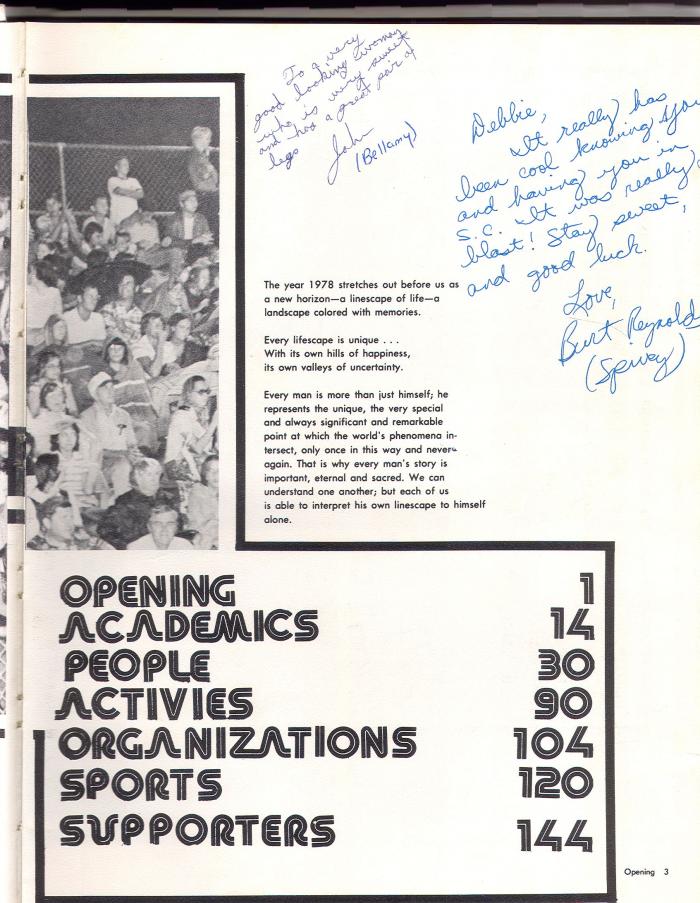 To a very
good looking woman
who is very sweet
and has a great pair of
legs
John
(Bellamy)
Debbie,
It really has
been cool knowing you
and having you in
S.C. It was really a
blast! Stay sweet,
and good luck.
Love,
Burt Reynolds
(Spivey)
The year 1978 stretches out before us as
a new horizon—a linescape of life—a
landscape colored with memories.
Every lifescape is unique . . .
With its own hills of happiness,
its own valleys of uncertainty.
Every man is more than just himself; he
represents the unique, the very special
and always significant and remarkable
point at which the world's phenomena in-
tersect, only once in this way and never
again. That is why every man's story is
important, eternal and sacred. We can
understand one another; but each of us
is able to interpret his own linescape to himself
alone.
OPENING 1
ACADEMICS 14
PEOPLE 30
ACTIVIES 90
ORGANIZATIONS 104
SPORTS 120
SUPPORTERS 144
Opening 3